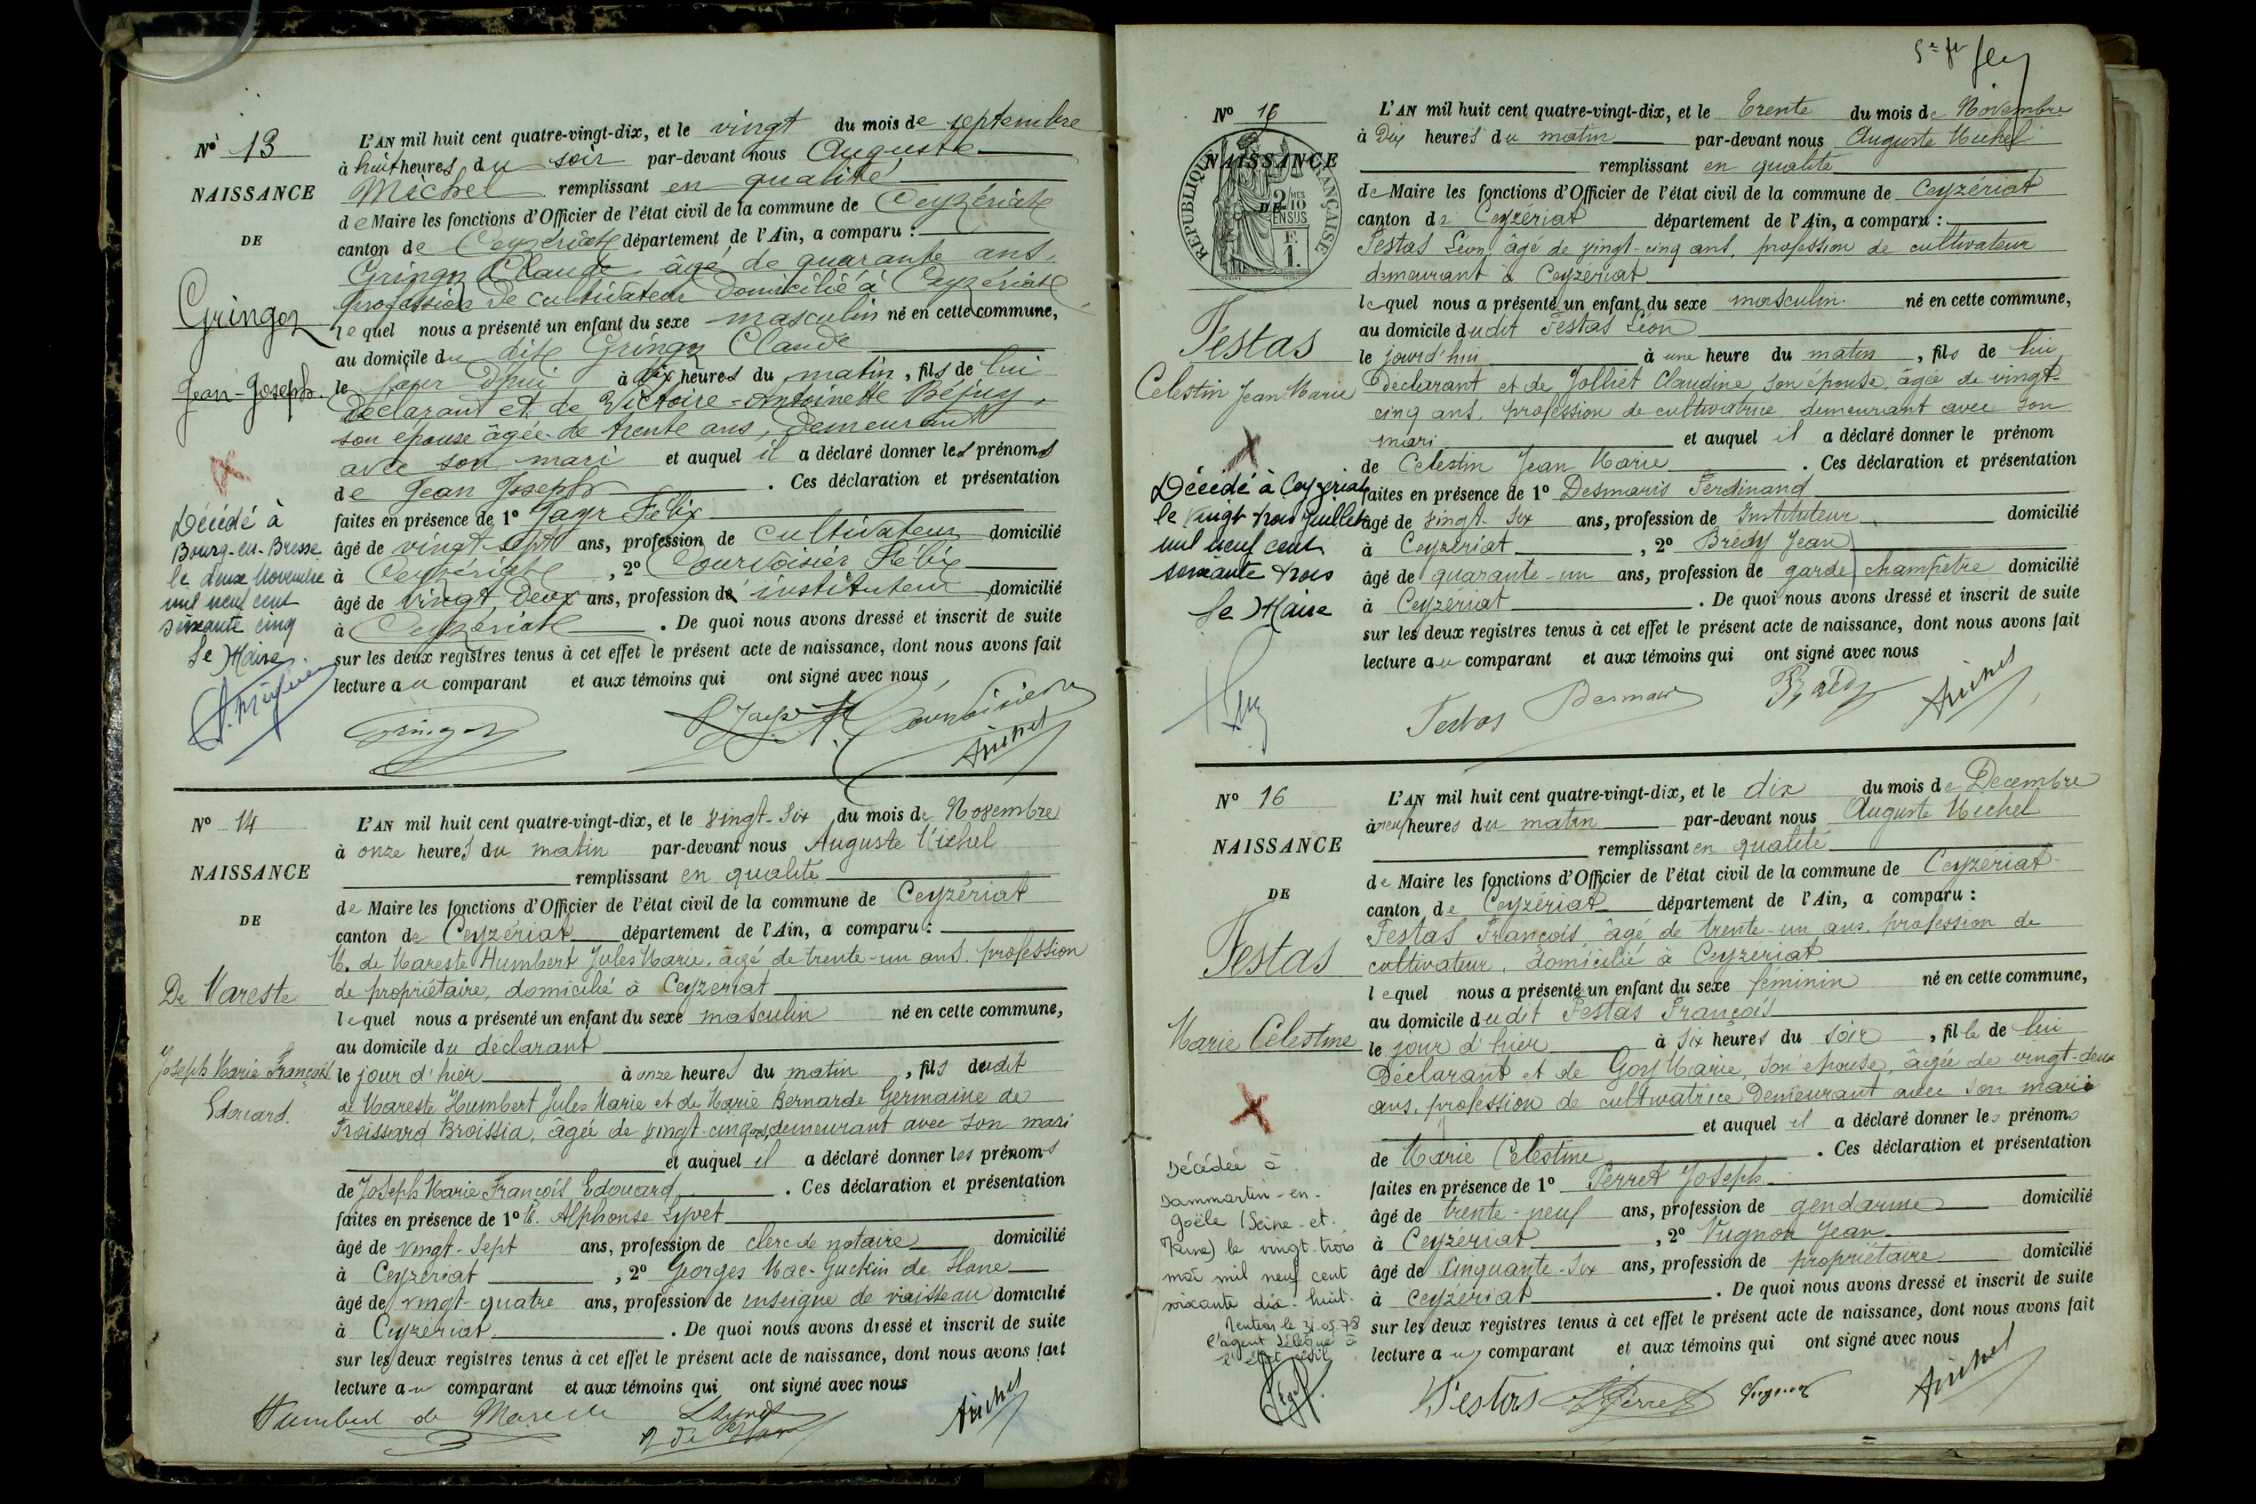 Nº 13
NAISSANCE
DE
Gringoz
Jean-Joseph.
Décédé à
Bourg-en-Bresse
le deux Novembre
mil neuf cent
soixante cinq
Le Maire
L'AN mil huit cent quatre-vingt-dix, et le vingt du mois de septembre
à huit heures du soir par-devant nous Auguste
Michel remplissant en qualité
de Maire les fonctions d'Officier de l'état civil de la commune de Ceyzériat
canton de Ceyzériat département de l'Ain, a comparu :
Gringoz Claude âgé de quarante ans,
profession de cultivateur domicilié à Ceyzériat
lequel nous a présenté un enfant du sexe masculin né en cette commune,
au domicile du dit Gringoz Claude
le jour d'hui à dix heures du matin, fils de lui
Déclarant et de Victoire-Antoinette Béjuy,
son épouse âgée de trente ans, demeurant
avec son mari et auquel il a déclaré donner les prénoms
de Jean Joseph . Ces déclaration et présentation
faites en présence de 1º Jayr Félix
âgé de vingt-sept ans, profession de cultivateur domicilié
à Ceyzériat, 2º Courvoisier Félix
âgé de vingt deux ans, profession de instituteur domicilié
à Ceyzériat . De quoi nous avons dressé et inscrit de suite
sur les deux registres tenus à cet effet le présent acte de naissance, dont nous avons fait
lecture au comparant et aux témoins qui ont signé avec nous
Gringoz Jayr F Courvoisier
Michel
Nº 14
NAISSANCE
DE
De Mareste
Joseph Marie François
Edouard.
L'AN mil huit cent quatre-vingt-dix, et le vingt-six du mois de Novembre
à onze heures du matin par-devant nous Auguste Michel
remplissant en qualité
de Maire les fonctions d'Officier de l'état civil de la commune de Ceyzériat
canton de Ceyzériat département de l'Ain, a comparu :
M. de Mareste Humbert Jules Marie, âgé de trente-un ans, profession
de propriétaire, domicilié à Ceyzeriat
lequel nous a présenté un enfant du sexe masculin né en cette commune,
au domicile du déclarant
le jour d'hier à onze heures du matin, fils dudit
de Mareste Humbert Jules Marie et de Marie Bernarde Germaine de
Froissard Broissia, âgée de vingt-cinq ans, demeurant avec son mari
et auquel il a déclaré donner les prénoms
de Joseph Marie François Edouard . Ces déclaration et présentation
faites en présence de 1º M. Alphonse Lyvet
âgé de vingt-sept ans, profession de clerc de notaire domicilié
à Ceyzériat, 2º Georges Mac-Guckin de Slane
âgé de vingt-quatre ans, profession de enseigne de vaisseau domicilié
à Ceyzériat . De quoi nous avons dressé et inscrit de suite
sur les deux registres tenus à cet effet le présent acte de naissance, dont nous avons fait
lecture au comparant et aux témoins qui ont signé avec nous
Humbert de Mareste Lyvet Michel
de Slane
Nº 15
RÉPUBLIQUE FRANÇAISE
NAISSANCE
DE
Festas
Celestin Jean Marie
Décédé à Ceyzeriat
le vingt trois Juillet
mil neuf cent
soixante trois
Le Maire
L'AN mil huit cent quatre-vingt-dix, et le trente du mois de Novembre
à Dix heures du matin par-devant nous Auguste Michel
remplissant en qualité
de Maire les fonctions d'Officier de l'état civil de la commune de Ceyzériat
canton de Ceyzériat département de l'Ain, a comparu :
Festas Léon, âgé de vingt-cinq ans, profession de cultivateur
demeurant à Ceyzériat
lequel nous a présenté un enfant du sexe masculin né en cette commune,
au domicile dudit Festas Léon
le jourd'hui à une heure du matin, fils de lui
déclarant et de Jolliet Claudine, son épouse, âgée de vingt-
cinq ans, profession de cultivatrice demeurant avec son
mari et auquel il a déclaré donner le prénom
de Celestin Jean Marie . Ces déclaration et présentation
faites en présence de 1º Desmaris Ferdinand
âgé de vingt-six ans, profession de Instituteur domicilié
à Ceyzériat, 2º Brédy Jean
âgé de quarante-un ans, profession de garde champêtre domicilié
à Ceyzériat . De quoi nous avons dressé et inscrit de suite
sur les deux registres tenus à cet effet le présent acte de naissance, dont nous avons fait
lecture au comparant et aux témoins qui ont signé avec nous
Festas Desmaris Brédy Michel
Nº 16
NAISSANCE
DE
Festas
Marie Celestine
Décédée à
Dammartin-en-
Goële (Seine-et-
Marne) le vingt-trois
mai mil neuf cent
soixante dix-huit.
Mention le 31.05.78
L'agent délégué à
l'état civil
L'AN mil huit cent quatre-vingt-dix, et le dix du mois de Décembre
à neuf heures du matin par-devant nous Auguste Michel
remplissant en qualité
de Maire les fonctions d'Officier de l'état civil de la commune de Ceyzériat
canton de Ceyzériat département de l'Ain, a comparu :
Festas François âgé de trente-un ans, profession de
cultivateur, domicilié à Ceyzériat
lequel nous a présenté un enfant du sexe féminin né en cette commune,
au domicile dudit Festas François
le jour d'hier à six heures du soir, fille de lui
Déclarant et de Goy Marie, son épouse, âgée de vingt-deux
ans, profession de cultivatrice Demeurant avec son mari
et auquel il a déclaré donner les prénoms
de Marie Celestine . Ces déclaration et présentation
faites en présence de 1º Perret Joseph
âgé de trente-neuf ans, profession de gendarme domicilié
à Ceyzériat, 2º Vugnon Jean
âgé de Cinquante-six ans, profession de propriétaire domicilié
à Ceyzériat . De quoi nous avons dressé et inscrit de suite
sur les deux registres tenus à cet effet le présent acte de naissance, dont nous avons fait
lecture au comparant et aux témoins qui ont signé avec nous
Festas Perret Vugnon Michel